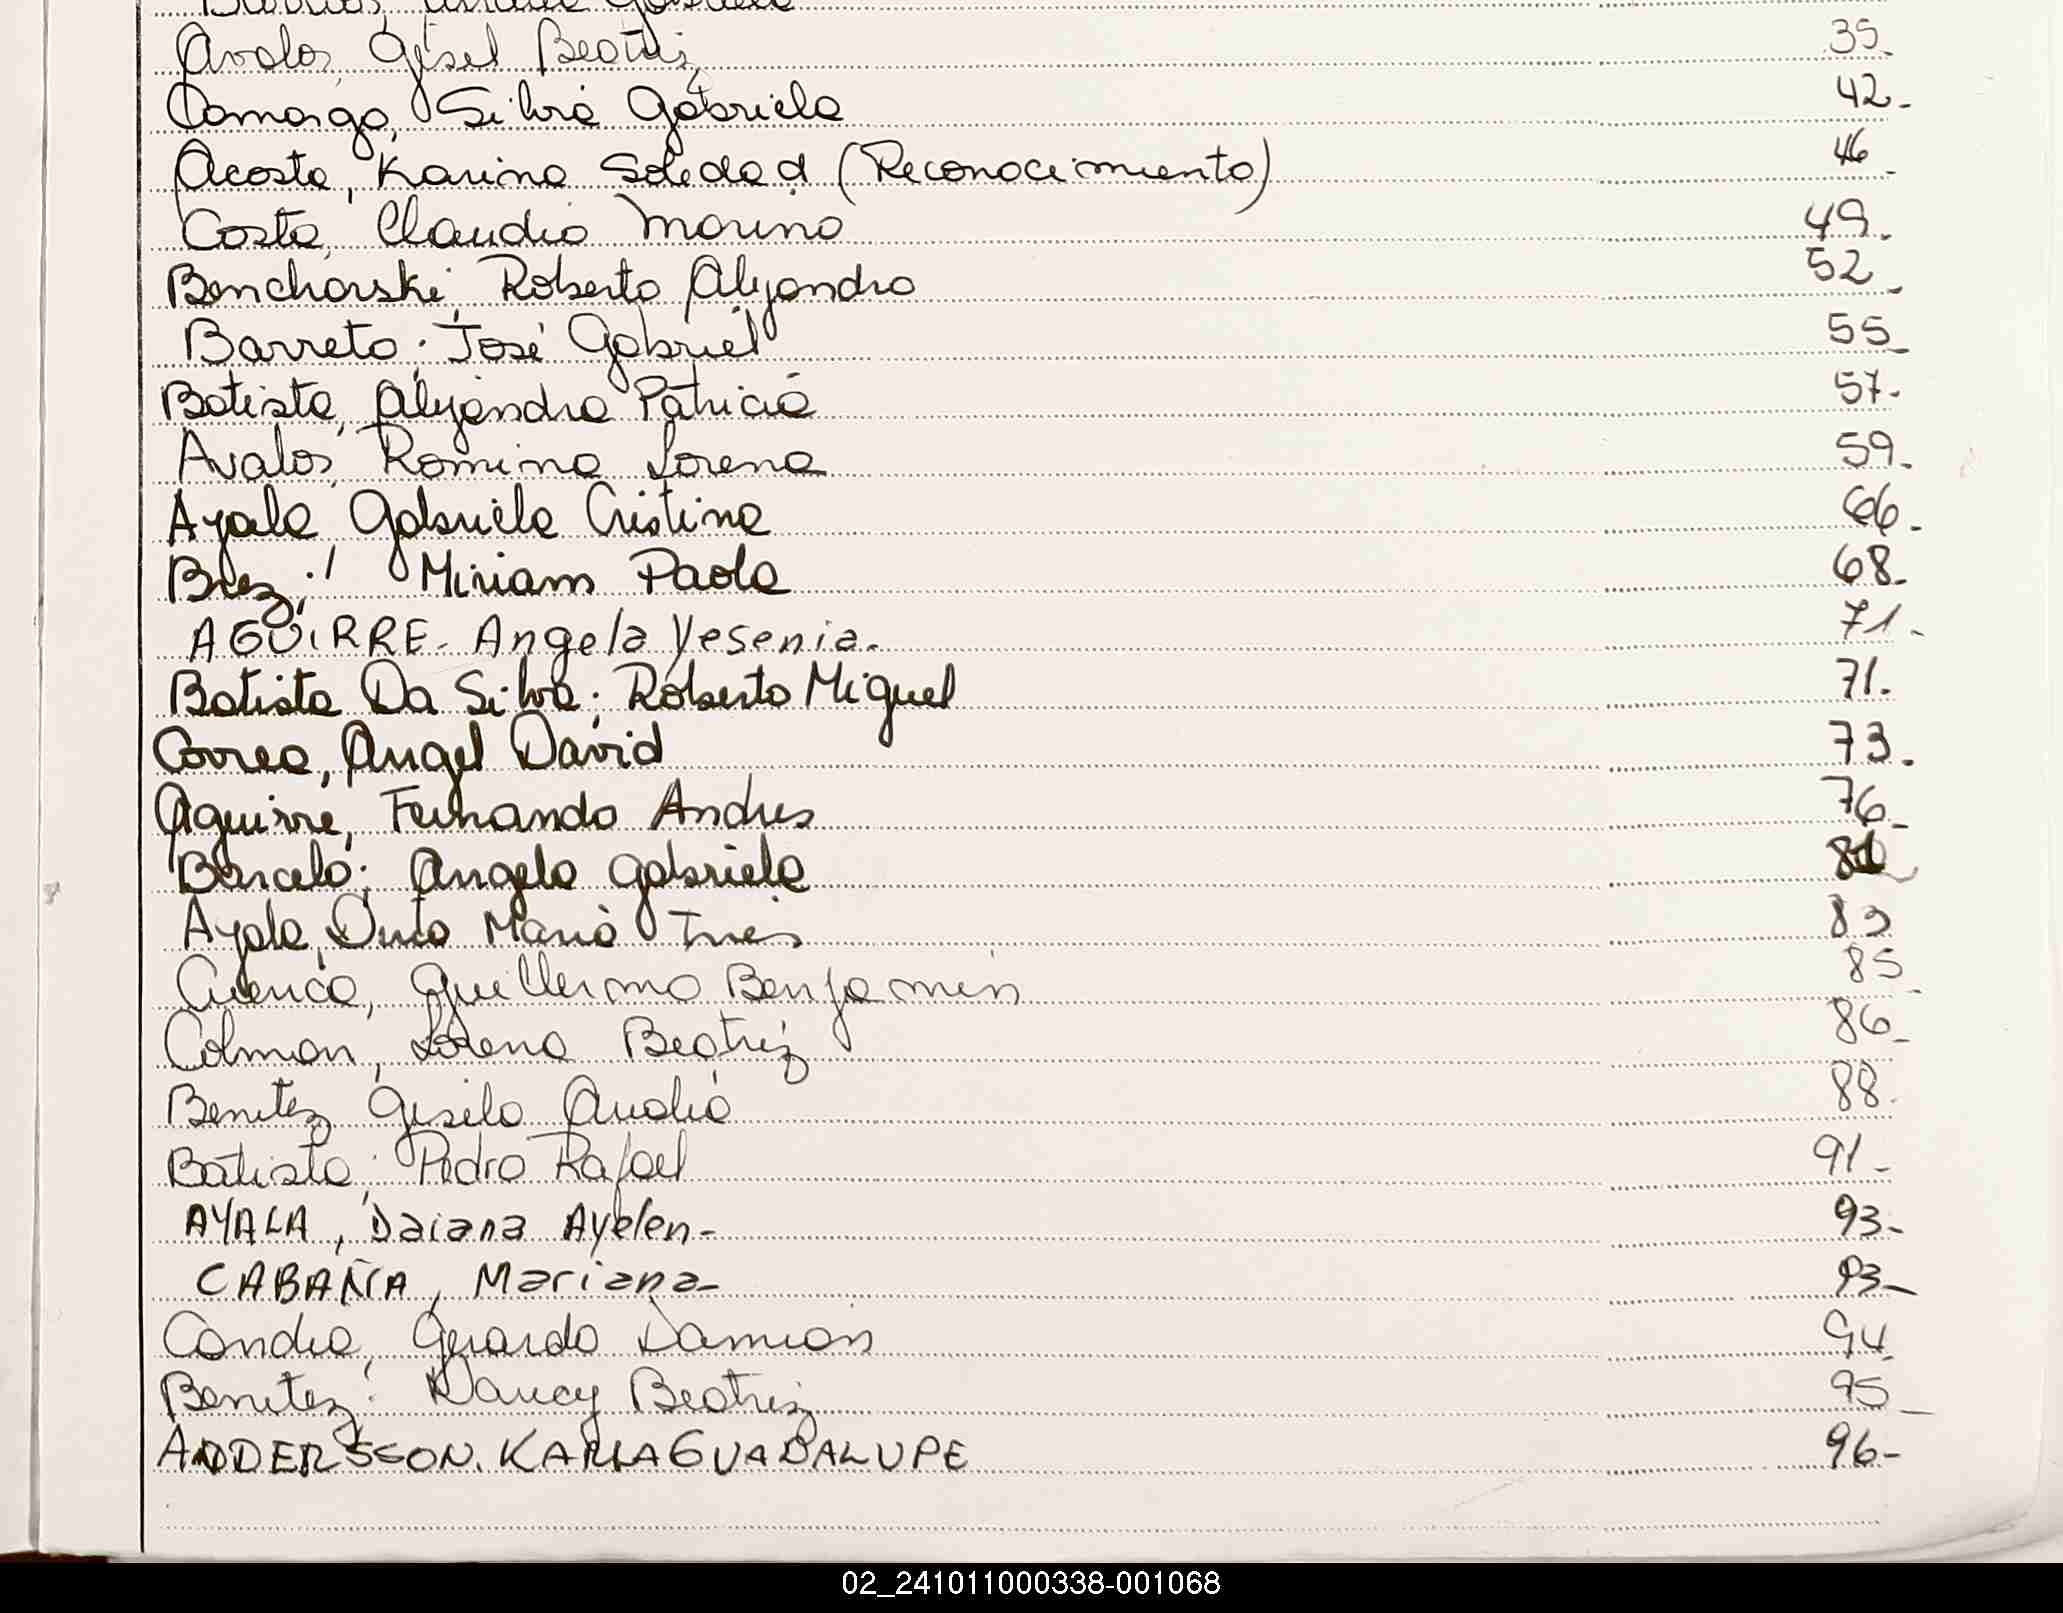 Avalos, Gisel Beatriz 35.
Camargo, Silvia Gabriela 42.
Acosta, Karina Soledad (Reconocimiento) 46.
Costa, Claudia Marina 49.
Bencharski, Roberto Alejandro 52.
Barreto; José Gabriel 55.
Batista, Alejandra Patricia 57.
Avalos, Romina Lorena 59.
Ayala, Gabriela Cristina 66.
Brez; Miriam Paola 68.
AGUIRRE. Angela Yesenia. 71.
Batista Da Silva; Roberto Miguel 71.
Correa, Angel David 73.
Aguirre, Fernando Andres 76.
Barcelo; Angela Gabriela
Ayala, María Inés 83
Cuenca, Guillermo Benjamín 85.
Colman, Lorena Beatriz 86.
Benitez Gisela Analia 88.
Batista; Pedro Rafael 91.
AYALA, Daiana Ayelen- 93-
CABAÑA, Mariana- 93-
Candia, Gerardo Damian 94.
Benitez; Nancy Beatriz 95.
ANDERSSON. KARLA GUADALUPE 96-
02_241011000338-001068